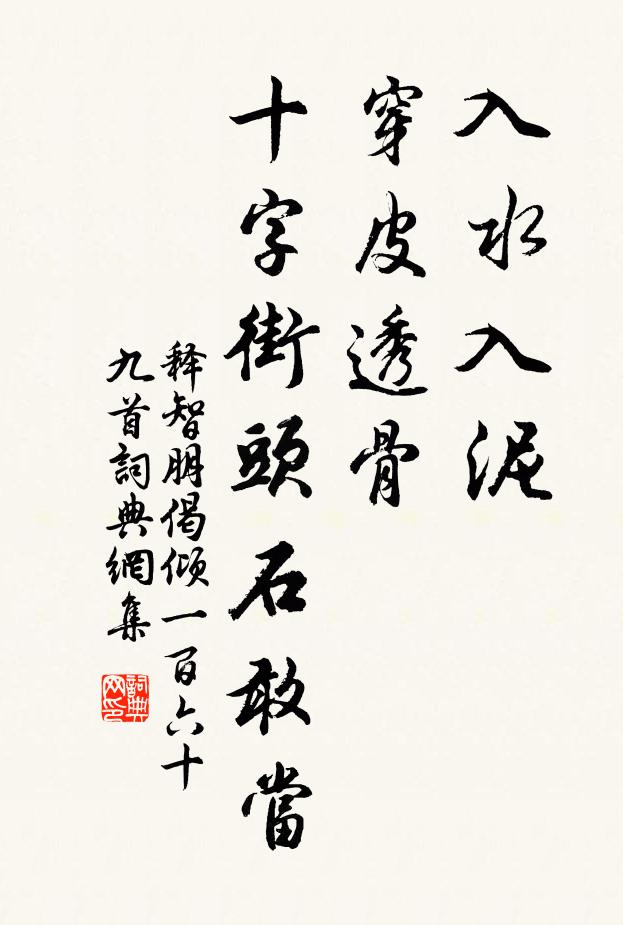 入水入泥
穿皮透骨
十字街頭石敢當
释智朋偈倾一百六十
九首詞典網集
詞典网印